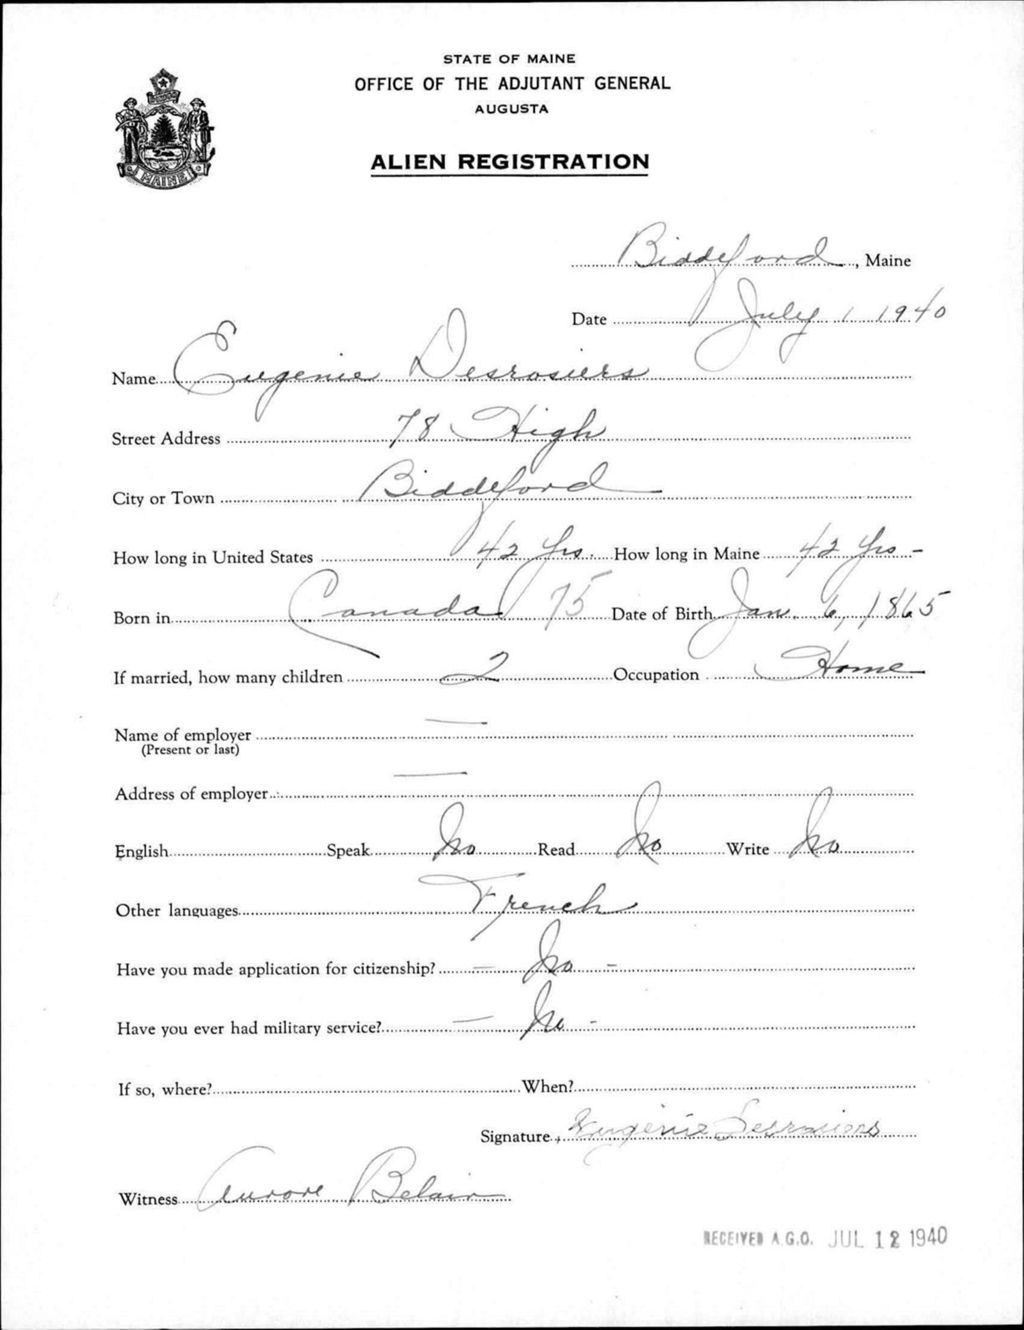 STATE OF MAINE
OFFICE OF THE ADJUTANT GENERAL
AUGUSTA
ALIEN REGISTRATION
MAINE
Biddeford, Maine
Date July 1 1940
Name Eugenie Desrosiers
Street Address 78 High
City or Town Biddeford
How long in United States 42 Yrs. How long in Maine 42 Yrs -
Born in Canada 75 Date of Birth Jan. 6, 1865
If married, how many children 2 Occupation Home
Name of employer —
(Present or last)
Address of employer —
English Speak No Read No Write No
Other languages French
Have you made application for citizenship? — No -
Have you ever had military service? — No -
If so, where? When?
Signature Eugénie Desrosiers
Witness Aurore Belair
RECEIVED A.G.O. JUL 12 1940